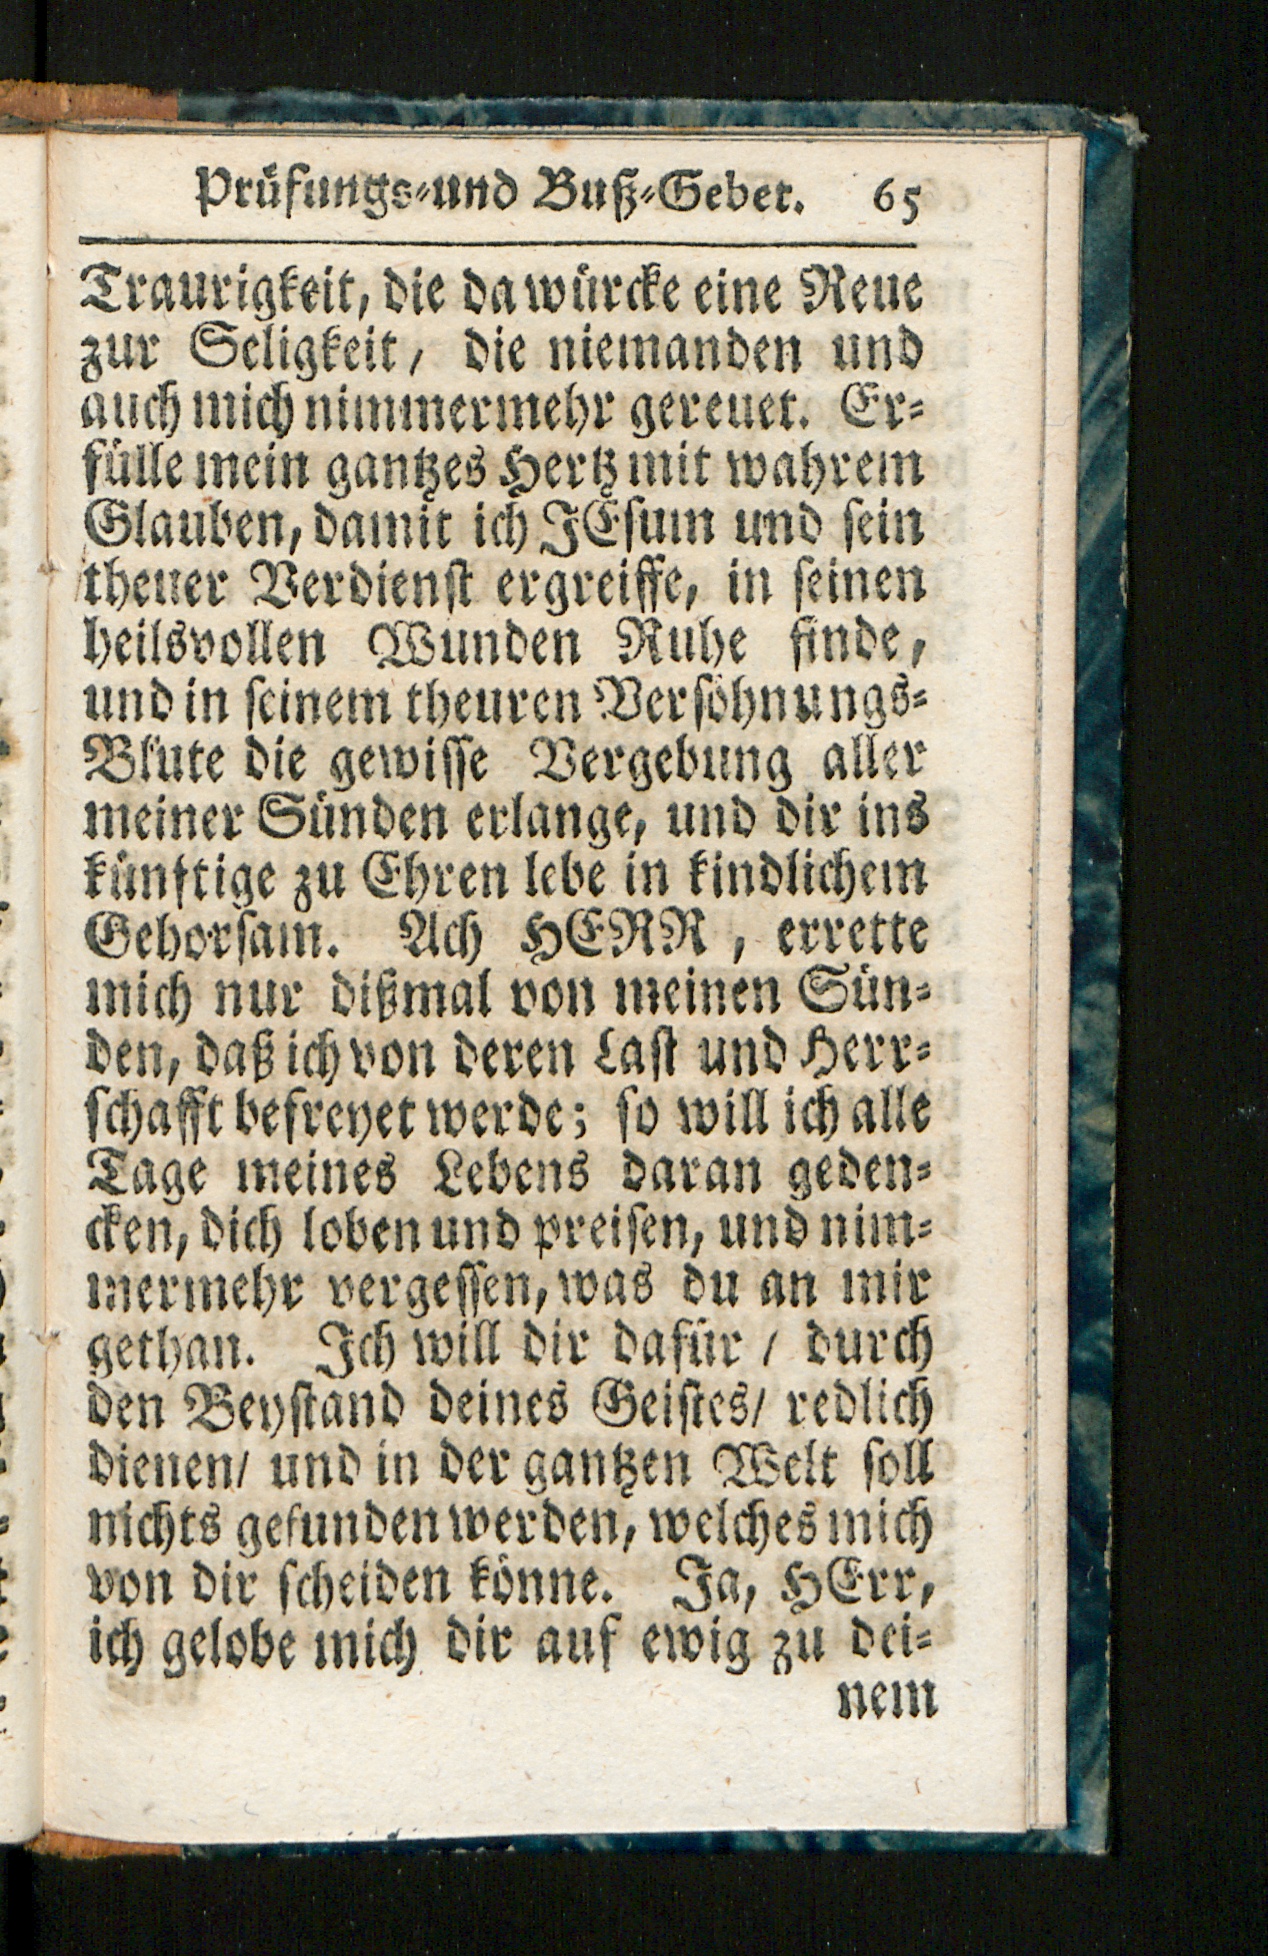 Prüfungs-und Buß-Gebet. 65
Traurigkeit, die da würcke eine Reue
zur Seligkeit / die niemanden und
auch mich nimmermehr gereuet. Er-
fülle mein gantzes Hertz mit wahrem
Glauben, damit ich JEsum und sein
theuer Verdienst ergreiffe, in seinen
heilsvollen Wunden Ruhe finde,
und in seinem theuren Versöhnungs-
Blute die gewisse Vergebung aller
meiner Sünden erlange, und dir ins
künftige zu Ehren lebe in kindlichem
Gehorsam. Ach HERR, errette
mich nur dißmal von meinen Sün-
den, daß ich von deren Last und Herr-
schafft befreyet werde; so will ich alle
Tage meines Lebens daran geden-
cken, dich loben und preisen, und nim-
mermehr vergessen, was du an mir
gethan. Ich will dir dafür / durch
den Beystand deines Geistes / redlich
dienen / und in der gantzen Welt soll
nichts gefunden werden, welches mich
von dir scheiden könne. Ja, HErr,
ich gelobe mich dir auf ewig zu dei-
nem